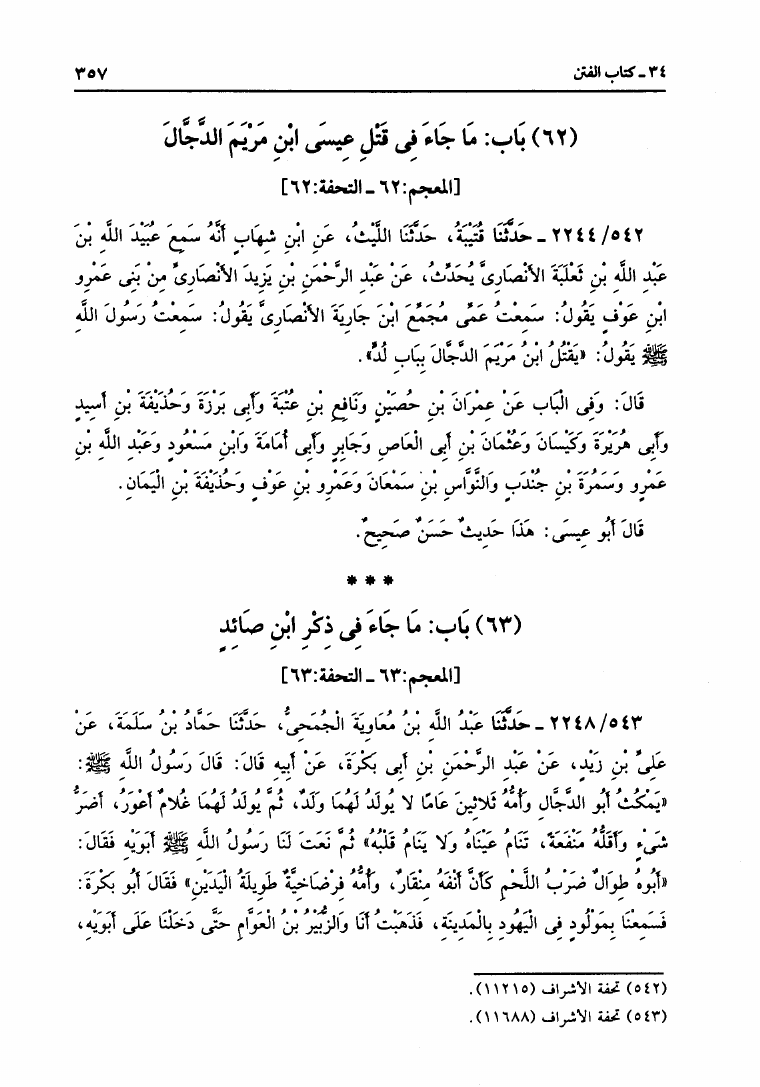 ٣٤ ـ كتاب الفتن ٣٥٧
(٦٢) بَاب: مَا جَاءَ فِى قَتْلِ عِيسَى ابْنِ مَرْيَمَ الدَّجَّالَ
[المعجم:٦٢ ـ التحفة:٦٢]
٢٢٤٤/٥٤٢ ـ حَدَّثَنَا قُتَيْبَةُ، حَدَّثَنَا اللَّيْثُ، عَنِ ابْنِ شِهَابٍ أَنَّهُ سَمِعَ عُبَيْدَ اللَّهِ بْنَ
عَبْدِ اللَّهِ بْنِ ثَعْلَبَةَ الأَنْصَارِىَّ يُحَدِّثُ، عَنْ عَبْدِ الرَّحْمَنِ بْنِ يَزِيدَ الأَنْصَارِىِّ مِنْ بَنِى عَمْرِو
ابْنِ عَوْفٍ يَقُولُ: سَمِعْتُ عَمِّى مُجَمِّعَ ابْنَ جَارِيَةَ الأَنْصَارِىَّ يَقُولُ: سَمِعْتُ رَسُولَ اللَّهِ
ﷺ يَقُولُ: «يَقْتُلُ ابْنُ مَرْيَمَ الدَّجَّالَ بِبَابِ لُدٍّ».
قَالَ: وَفِى الْبَاب عَنْ عِمْرَانَ بْنِ حُصَيْنٍ وَنَافِعِ بْنِ عُتْبَةَ وَأَبِى بَرْزَةَ وَحُذَيْفَةَ بْنِ أَسِيدٍ
وَأَبِى هُرَيْرَةَ وَكَيْسَانَ وَعُثْمَانَ بْنِ أَبِى الْعَاصِ وَجَابِرٍ وَأَبِى أُمَامَةَ وَابْنِ مَسْعُودٍ وَعَبْدِ اللَّهِ بْنِ
عَمْرٍو وَسَمُرَةَ بْنِ جُنْدَبٍ وَالنَّوَّاسِ بْنِ سَمْعَانَ وَعَمْرِو بْنِ عَوْفٍ وَحُذَيْفَةَ بْنِ الْيَمَانِ.
قَالَ أَبُو عِيسَى: هَذَا حَدِيثٌ حَسَنٌ صَحِيحٌ.
* * *
(٦٣) بَاب: مَا جَاءَ فِى ذِكْرِ ابْنِ صَائِدٍ
[المعجم:٦٣ ـ التحفة:٦٣]
٢٢٤٨/٥٤٣ ـ حَدَّثَنَا عَبْدُ اللَّهِ بْنُ مُعَاوِيَةَ الْجُمَحِىُّ، حَدَّثَنَا حَمَّادُ بْنُ سَلَمَةَ، عَنْ
عَلِىِّ بْنِ زَيْدٍ، عَنْ عَبْدِ الرَّحْمَنِ بْنِ أَبِى بَكْرَةَ، عَنْ أَبِيهِ قَالَ: قَالَ رَسُولُ اللَّهِ ﷺ:
«يَمْكُثُ أَبُو الدَّجَّالِ وَأُمُّهُ ثَلاثِينَ عَامًا لا يُولَدُ لَهُمَا وَلَدٌ، ثُمَّ يُولَدُ لَهُمَا غُلامٌ أَعْوَرُ، أَضَرُّ
شَىْءٍ وَأَقَلُّهُ مَنْفَعَةً، تَنَامُ عَيْنَاهُ وَلا يَنَامُ قَلْبُهُ» ثُمَّ نَعَتَ لَنَا رَسُولُ اللَّهِ ﷺ أَبَوَيْهِ فَقَالَ:
«أَبُوهُ طِوَالٌ ضَرْبُ اللَّحْمِ كَأَنَّ أَنْفَهُ مِنْقَارٌ، وَأُمُّهُ فِرْضَاخِيَّةٌ طَوِيلَةُ الْيَدَيْنِ» فَقَالَ أَبُو بَكْرَةَ:
فَسَمِعْنَا بِمَوْلُودٍ فِى الْيَهُودِ بِالْمَدِينَةِ، فَذَهَبْتُ أَنَا وَالزُّبَيْرُ بْنُ الْعَوَّامِ حَتَّى دَخَلْنَا عَلَى أَبَوَيْهِ،
(٥٤٢) تحفة الأشراف (١١٢١٥).
(٥٤٣) تحفة الأشراف (١١٦٨٨).